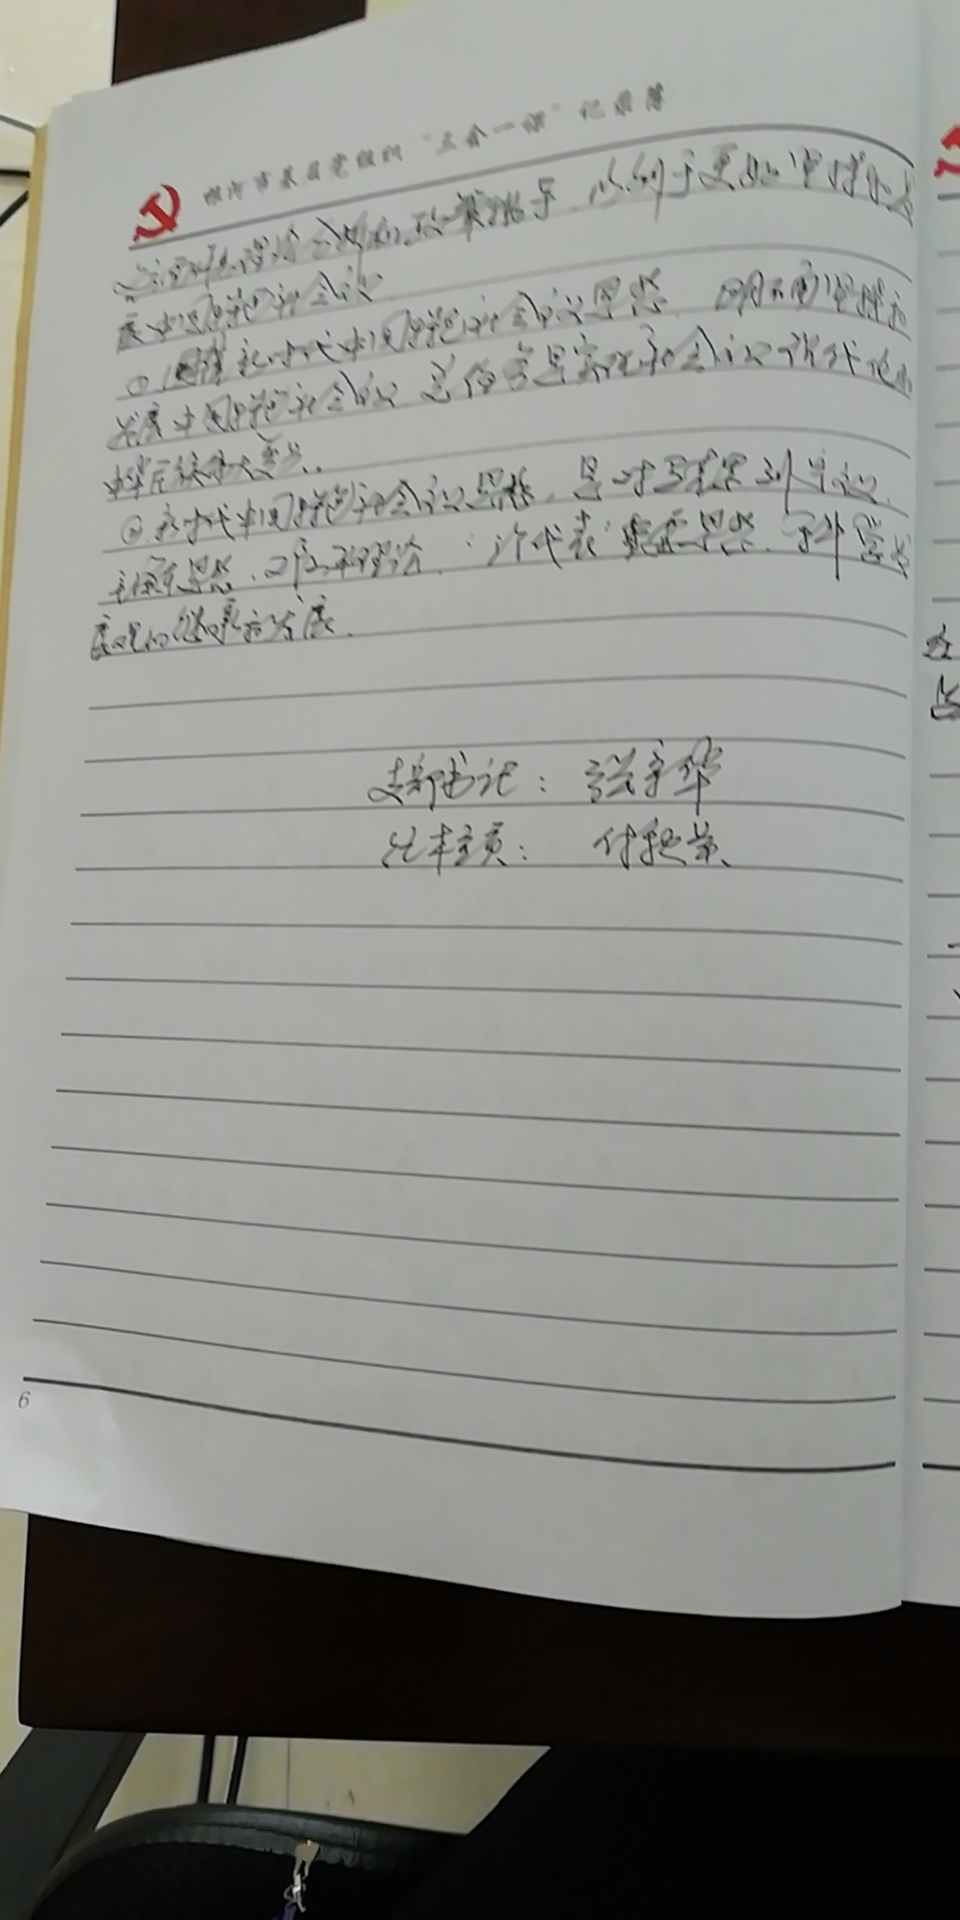 根河市基层党组织“三会一课”记录簿
理论分析和政策指导,以利于更好坚持和发
展中国特色社会主义
① 新时代中国特色社会主义思想 明确坚持和
发展中国特色社会主义 总任务是实现社会主义现代化和
中华民族伟大复兴.
② 新时代中国特色社会主义思想,是对马克思列宁主义
毛泽东思想、邓小平理论、三个代表重要思想、科学发
展观的继承和发展.
支部书记: 张宇华
记录员: 付
6